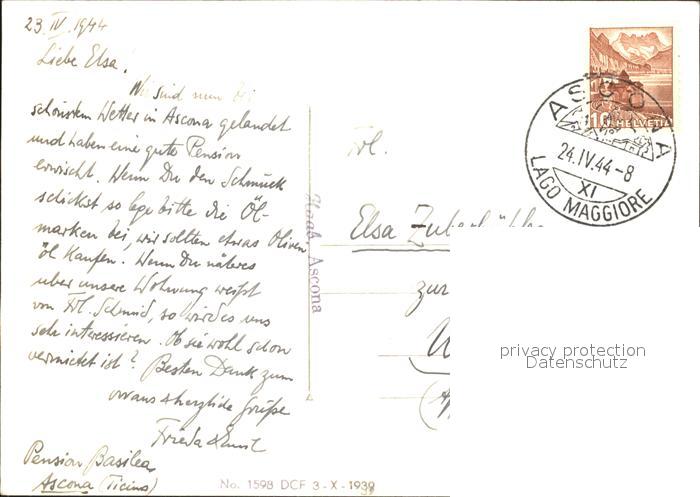 23.IV.1944
Liebe Elsa!
Wir sind nun bei
schönstem Wetter in Ascona gelandet
und haben eine gute Pension
erwischt. Wenn Du den Schmuck
schickst so lege bitte die Öl-
marken bei, wir sollten etwas Oliven
öl kaufen. Wenn Du näheres
über unsere Wohnung weisst
von Frl. Schmid, so würdes uns
sehr interessieren. Ob sie wohl schon
vermietet ist? Besten Dank zum
voraus & herzliche Grüsse
Frieda & Emil
Pension Basilea
Ascona (Ticino)
Haab, Ascona
No. 1598 DCF 3-X-1939
Frl.
Elsa
zur
10 HELVETIA
ASCONA
24.IV.44-8
XI
LAGO MAGGIORE
privacy protection
Datenschutz